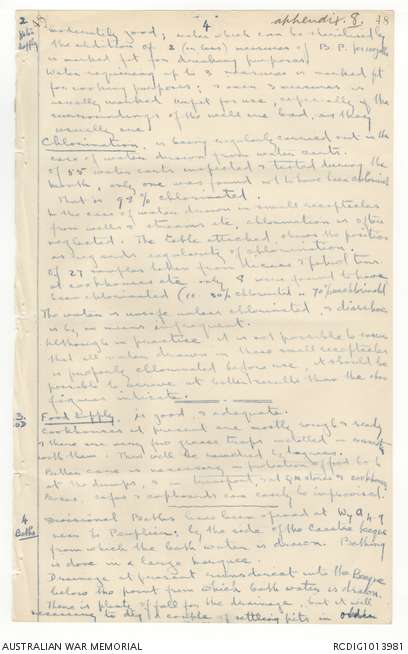 appendix. 8. 78
2 4
Water Supply moderately good; water which can be sterilised by
the addition of 2 (or less) measures of B.P. per
is marked fit for drinking purposes.
Water requiring up to 3 measures is marked fit
for cooking purposes; & over 3 measures is
usually marked unfit for use, especially if the
surroundings of the wells are bad, as they
usually are.
Chlorination is being regularly carried out in the
case of water drawn from water carts.
Of 55 water carts inspected & tested during the
month, only one was found not to have been chlorinated
That is 98% chlorinated.
In the case of water drawn in small receptacles
from wells & streams etc, chlorination is often
neglected. The table attached shows the position
as regards regularity of chlorination.
Of 27 samples taken from & petrol tins
at cookhouses etc only 8 were found to have
been chlorinated (i.e. 30% chlorinated or 70% unchlorinated
The water is unsafe unless chlorinated, &
is by no means infrequent.
Although in practice it is not possible to ensure
that all water drawn in these small receptacles
is properly chlorinated before use, it should be
possible to arrive at better results than the above
figures indicate.
3. Food Supply is good, & adequate.
Cookhouses at present are mostly rough & ready
& there are very few grease traps installed in
with them. This will be remedied by degrees.
Better care is necessary in protection of food both
at the dumps, & in transport, & at QM stores & cookhouses
Boxes, safes & cupboards can easily be improvised.
4 Baths Divisional Baths have been opened at
near to by the side of the
from which the bath water is drawn. Bathing
is done in a large marquee.
Drainage at present runs direct into the
below the point from which bath water is drawn.
There is plenty of fall for the drainage, but it will
necessary to dig a couple of settling pits in order
AUSTRALIAN WAR MEMORIAL RCDIG1013981